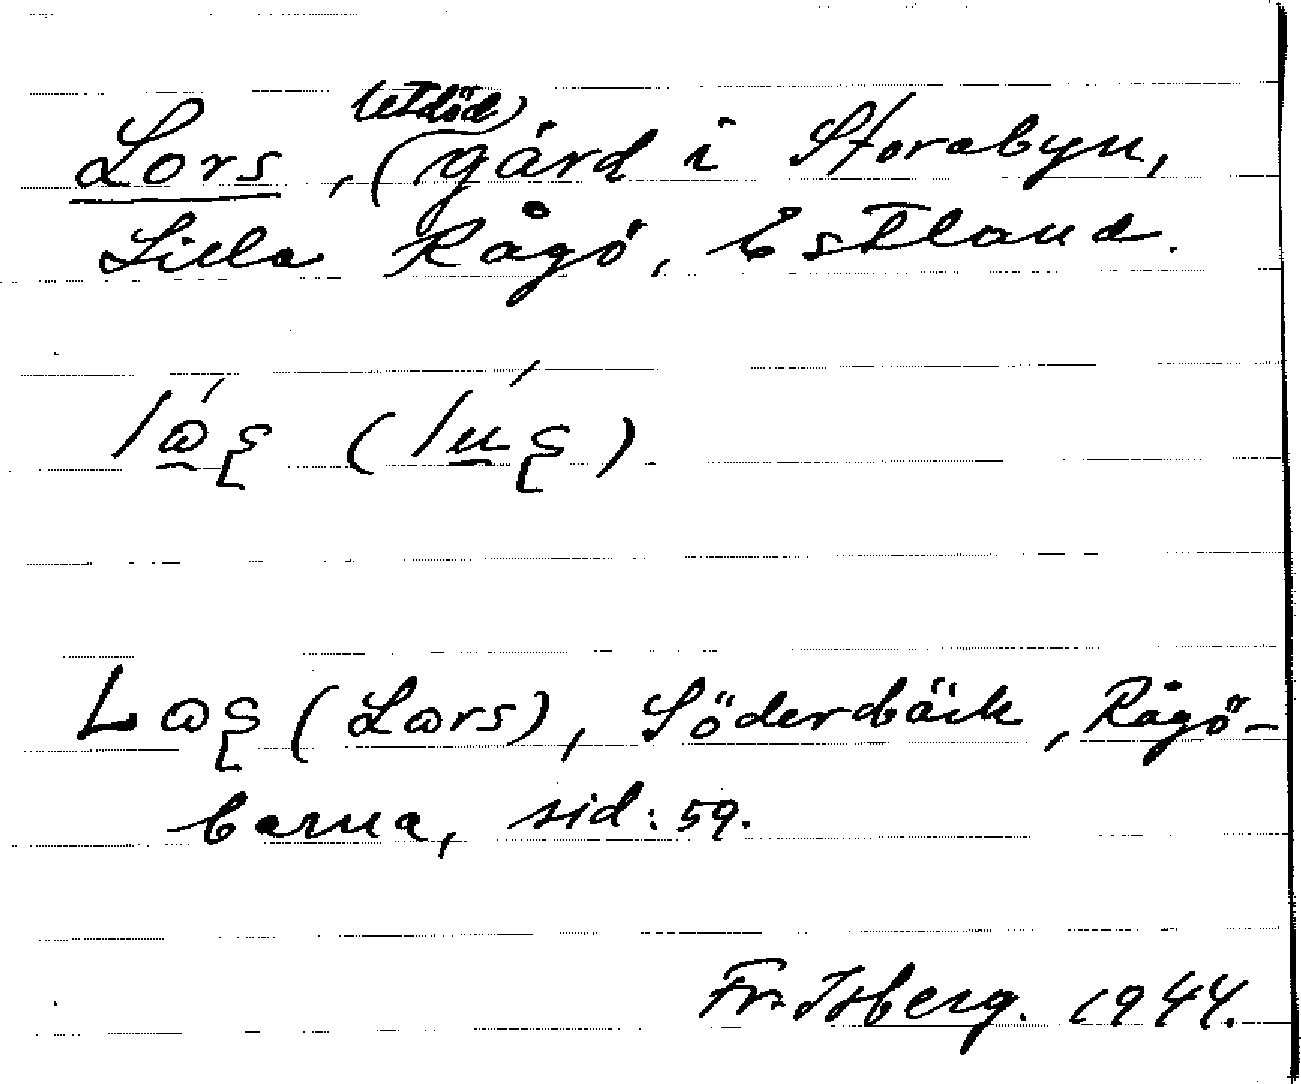 Lors, (utdöd) gård i Storabyn,
Lilla Rågö, Estland.
Söderbäck, Rågö-
barna, sid: 59.
Fr. Isberg. 1944.